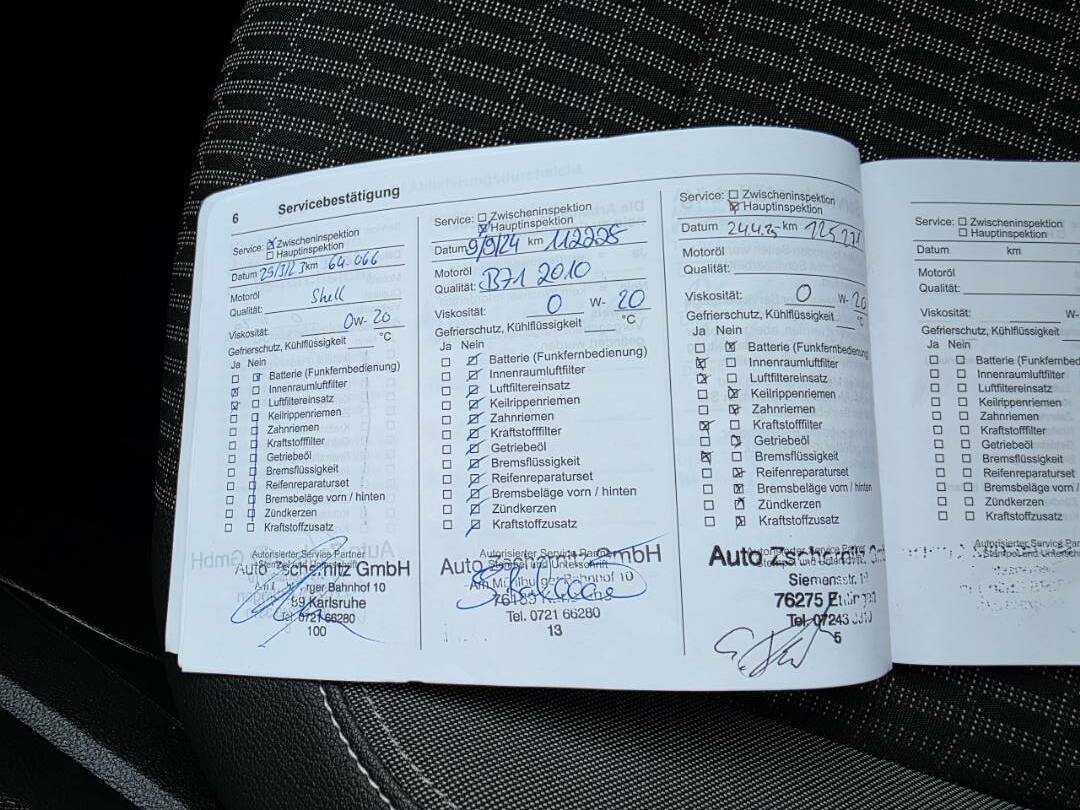 6 Servicebestätigung
Service: ☒ Zwischeninspektion
☐ Hauptinspektion
Datum 25/3/23 km 64.066
Motoröl
Qualität: Shell
Viskosität: 0W- 20
Gefrierschutz, Kühlflüssigkeit °C
Ja Nein
Batterie (Funkfernbedienung)
Innenraumluftfilter
Luftfiltereinsatz
Keilrippenriemen
Zahnriemen
Kraftstofffilter
Getriebeöl
Bremsflüssigkeit
Reifenreparaturset
Bremsbeläge vorn / hinten
Zündkerzen
Kraftstoffzusatz
Autorisierter Service Partner
Auto Zschernitz GmbH
Bahnhof 10
Karlsruhe
Tel. 0721 66280
100
Service: ☐ Zwischeninspektion
☒ Hauptinspektion
Datum 9/9/24 km 112225
Motoröl
Qualität: B71 2010
Viskosität: 0 W- 20
Gefrierschutz, Kühlflüssigkeit °C
Ja Nein
Batterie (Funkfernbedienung)
Innenraumluftfilter
Luftfiltereinsatz
Keilrippenriemen
Zahnriemen
Kraftstofffilter
Getriebeöl
Bremsflüssigkeit
Reifenreparaturset
Bremsbeläge vorn / hinten
Zündkerzen
Kraftstoffzusatz
Autorisierter Service Partner
Stempel und Unterschrift
Auto Zschernitz GmbH
Am Mühlburger Bahnhof 10
Tel. 0721 66280
13
Service: ☐ Zwischeninspektion
☒ Hauptinspektion
Datum 24.4.25 km
Motoröl
Qualität:
Viskosität: 0 W- 20
Gefrierschutz, Kühlflüssigkeit °C
Ja Nein
Batterie (Funkfernbedienung
Innenraumluftfilter
Luftfiltereinsatz
Keilrippenriemen
Zahnriemen
Kraftstofffilter
Getriebeöl
Bremsflüssigkeit
Reifenreparaturset
Bremsbeläge vorn / hinten
Zündkerzen
Kraftstoffzusatz
Auto Zschernitz
Siemensstr.
76275
Tel. 07243
5
Service: ☐ Zwischeninspektion
☐ Hauptinspektion
Datum km
Motoröl
Qualität:
Viskosität: W-
Gefrierschutz, Kühlflüssigkeit
Ja Nein
Batterie (Funkfernbed
Innenraumluftfilter
Luftfiltereinsatz
Keilrippenriemen
Zahnriemen
Kraftstofffilter
Getriebeöl
Bremsflüssigkeit
Reifenreparaturset
Bremsbeläge vorn /
Zündkerzen
Kraftstoffzusatz
Autorisierter Service Par
Stempel und Untersch